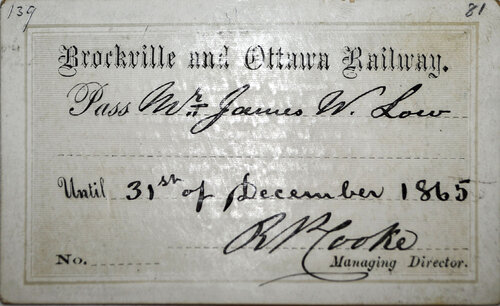 139 81
Brockville and Ottawa Railway.
Pass Mr James W. Low
Until 31st of December 1865
R P Cooke
No. Managing Director.